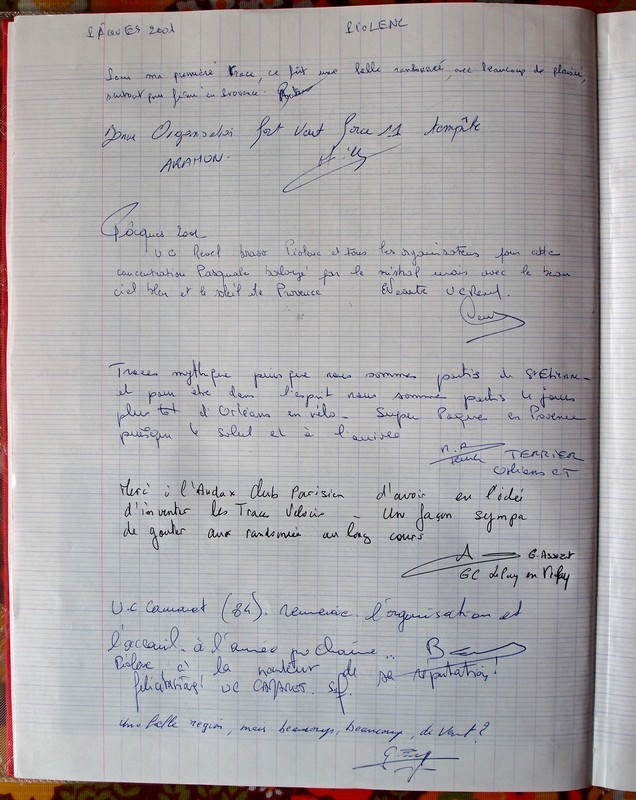 PÂQUES 2001 PIOLENC
Pour ma première trace, ce fût une belle randonnée, avec beaucoup de plaisir,
surtout pour finir en Provence.
Bonne Organisation fort Vent force 11 tempête
ARAMON.
Pâques 2001
UC Revel bravo Piolenc et tous les organisateurs pour cette
concentration Pascquale balayé par le mistral mais avec le beau
ciel bleu et le soleil de Provence UC Revel.
Traces mythique puisque nous sommes partis de St Etienne
et pour être dans l'esprit nous sommes partis 4 jours
plus tot d'Orléans en vélo - Super Paque en Provence
puisque le soleil est à l'arrivée
TERRIER
Orléans CT
Merci à l'Audax Club Parisien d'avoir eu l'idée
d'inventer les Trace Vélocio - Une façon sympa
de gouter aux randonnée au long cours
G. 
GC Le Puy en Velay
U.C Camaret (84). remercie l'organisation et
l'acceuil. à l'année prochaine...
Piolenc, à la hauteur de sa réputation!
félicitations! UC CAMARET.
Une belle region, mais beaucoup, beaucoup, de Vent?